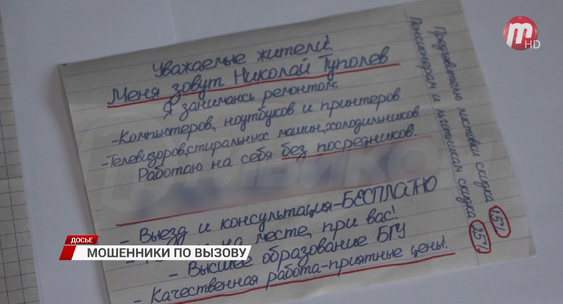 Уважаемые жители!
Меня зовут Николай Туполев
Я занимаюсь ремонтом:
-Компьютеров, ноутбуков и принтеров
-Телевизоров, стиральных машин, холодильников
Работаю на себя без посредников.
- Выезд и консультация-БЕСПЛАТНО
на месте, при вас!
- Высшее образование БГУ
- Качественная работа-приятные цены!
Предъявителю листовки скидка 15%
Пенсионерам и льготникам скидка 25%
HD
ДОСЬЕ
МОШЕННИКИ ПО ВЫЗОВУ